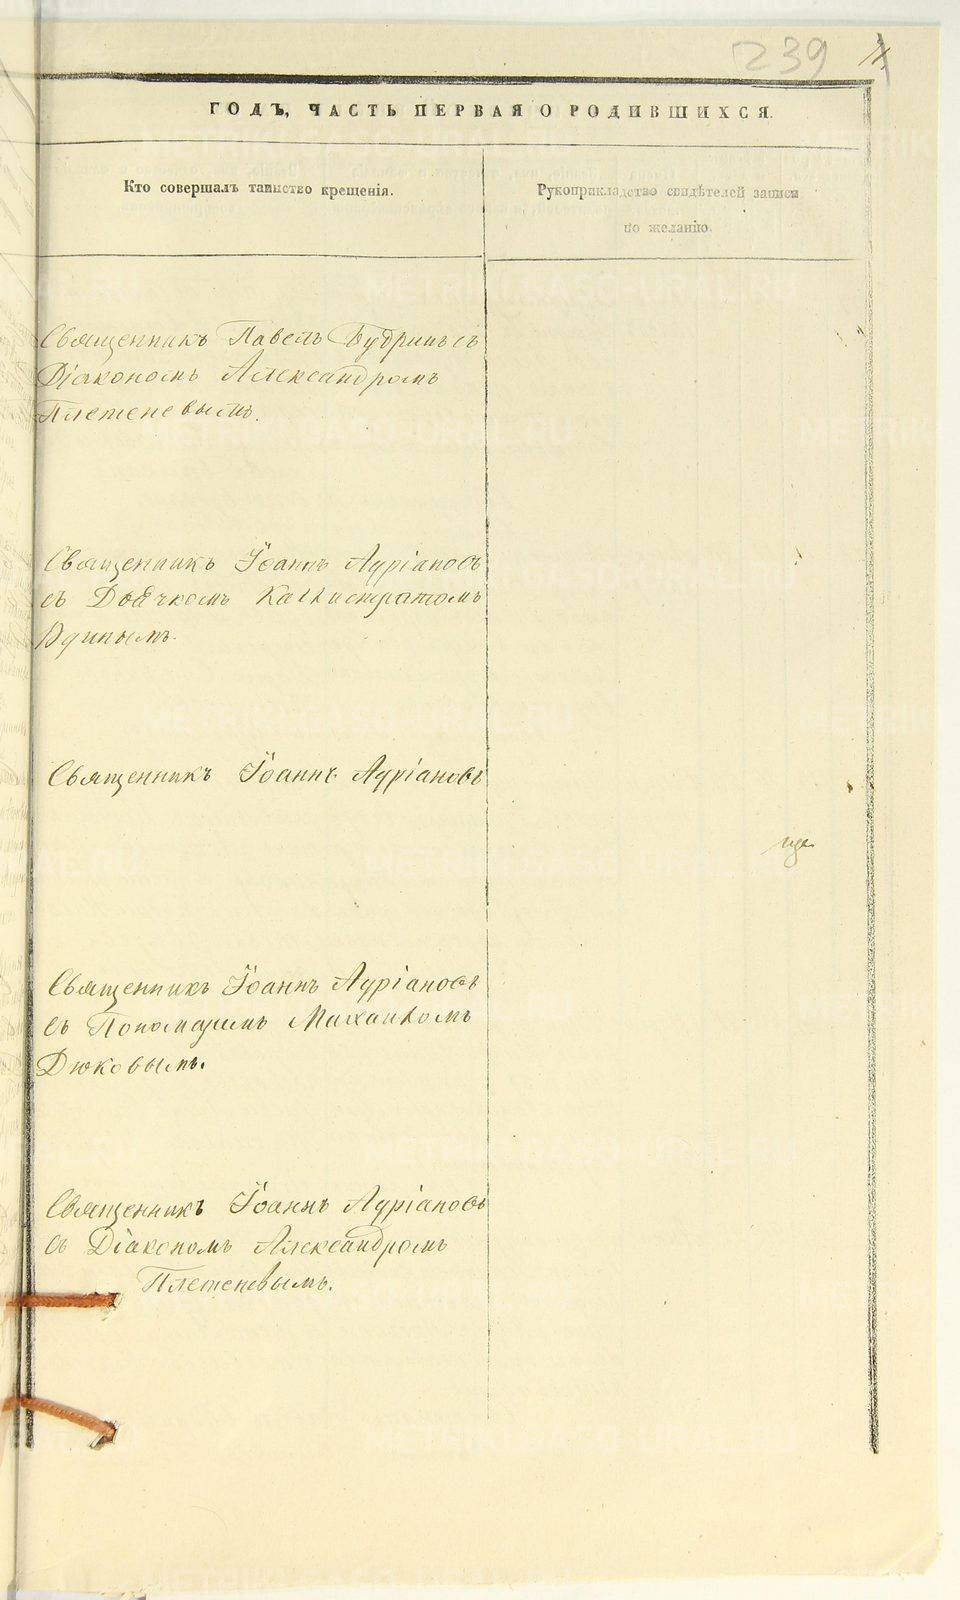 239
ГОДЪ, ЧАСТЬ ПЕРВАЯ О РОДИВШИХСЯ.
Кто совершалъ таинство крещенія.
Рукоприкладство свидѣтелей записи
по желанію.
Священникъ Павелъ Будринъ съ
Діакономъ Александромъ
Плетеневымъ.
Священникъ Іоаннъ Адріановъ
съ Дьячкомъ Каллистратомъ
Священникъ Іоаннъ Адріановъ
Священникъ Іоаннъ Адріановъ
съ Пономаремъ Михаиломъ
Дюковымъ.
Священникъ Іоаннъ Адріановъ
съ Діакономъ Александромъ
Плетеневымъ.
METRIKI.GASO-URAL.RU